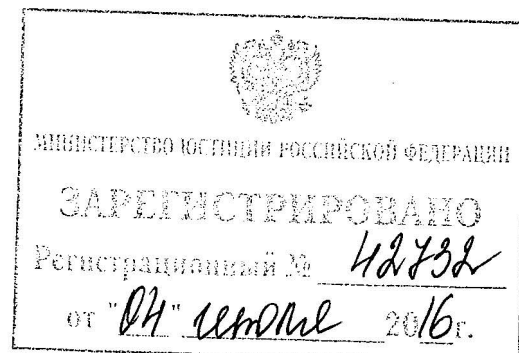 МИНИСТЕРСТВО ЮСТИЦИИ РОССИЙСКОЙ ФЕДЕРАЦИИ
ЗАРЕГИСТРИРОВАНО
Регистрационный № 42732
от "04" июля 2016г.